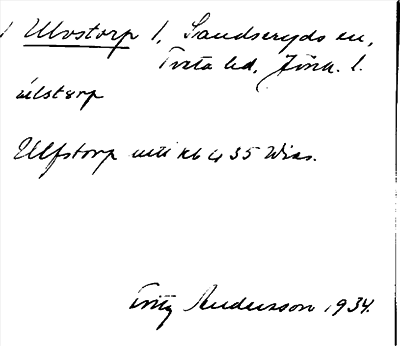 Ulvstorp 1, Sandseryds sn,
Tveta hd, Jönk. l.
ùlstørp
Ulfstorp utti kl 4 35 Wiss.
Fritz Andersson 1934.